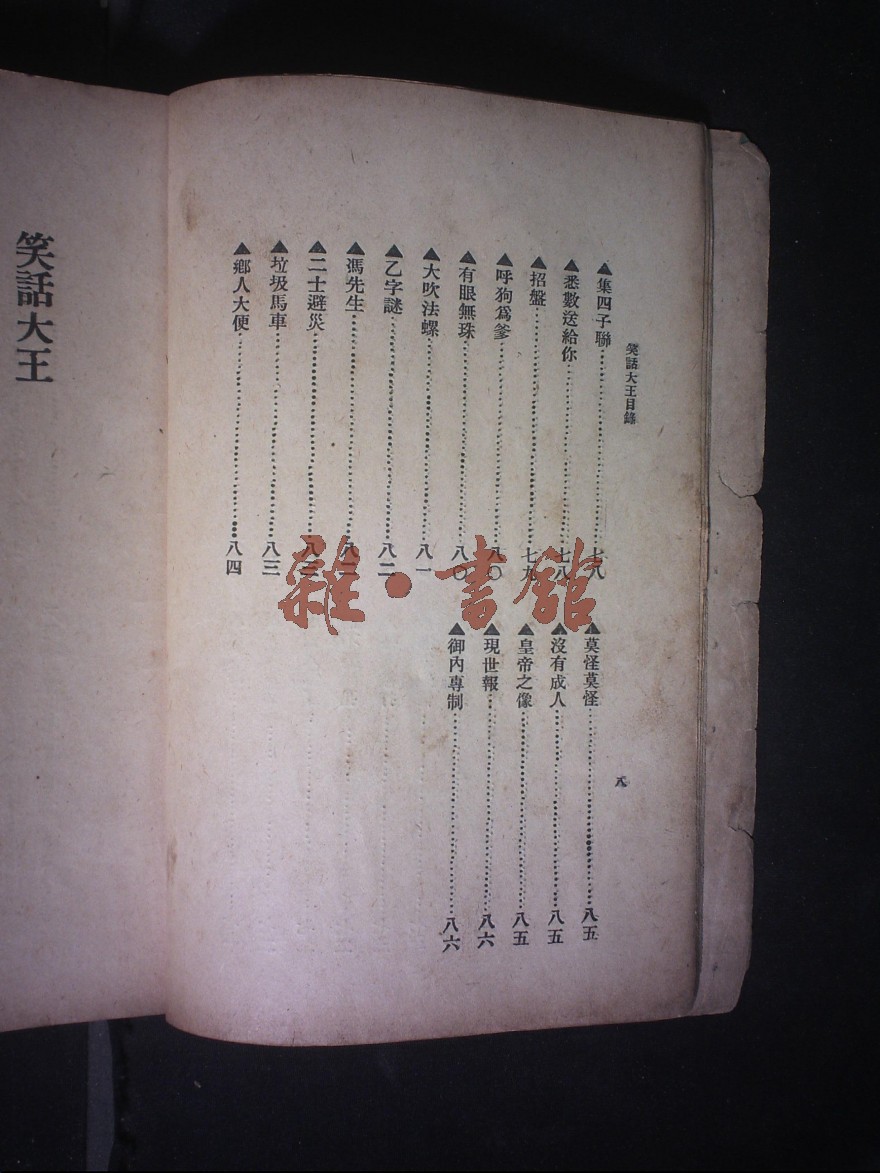 笑話大王目錄
▲集四子聯…………七八
▲悉數送給你…………七八
▲招盤…………七九
▲呼狗爲爹…………八〇
▲有眼無珠…………八〇
▲大吹法螺…………八一
▲乙字謎…………八二
▲馮先生…………八二
▲二士避災…………八三
▲垃圾馬車…………八三
▲鄉人大便…………八四
▲莫怪莫怪…………八五
▲沒有成人…………八五
▲皇帝之像…………八五
▲現世報…………八六
▲御內專制…………八六
八
笑話大王
雜·書館